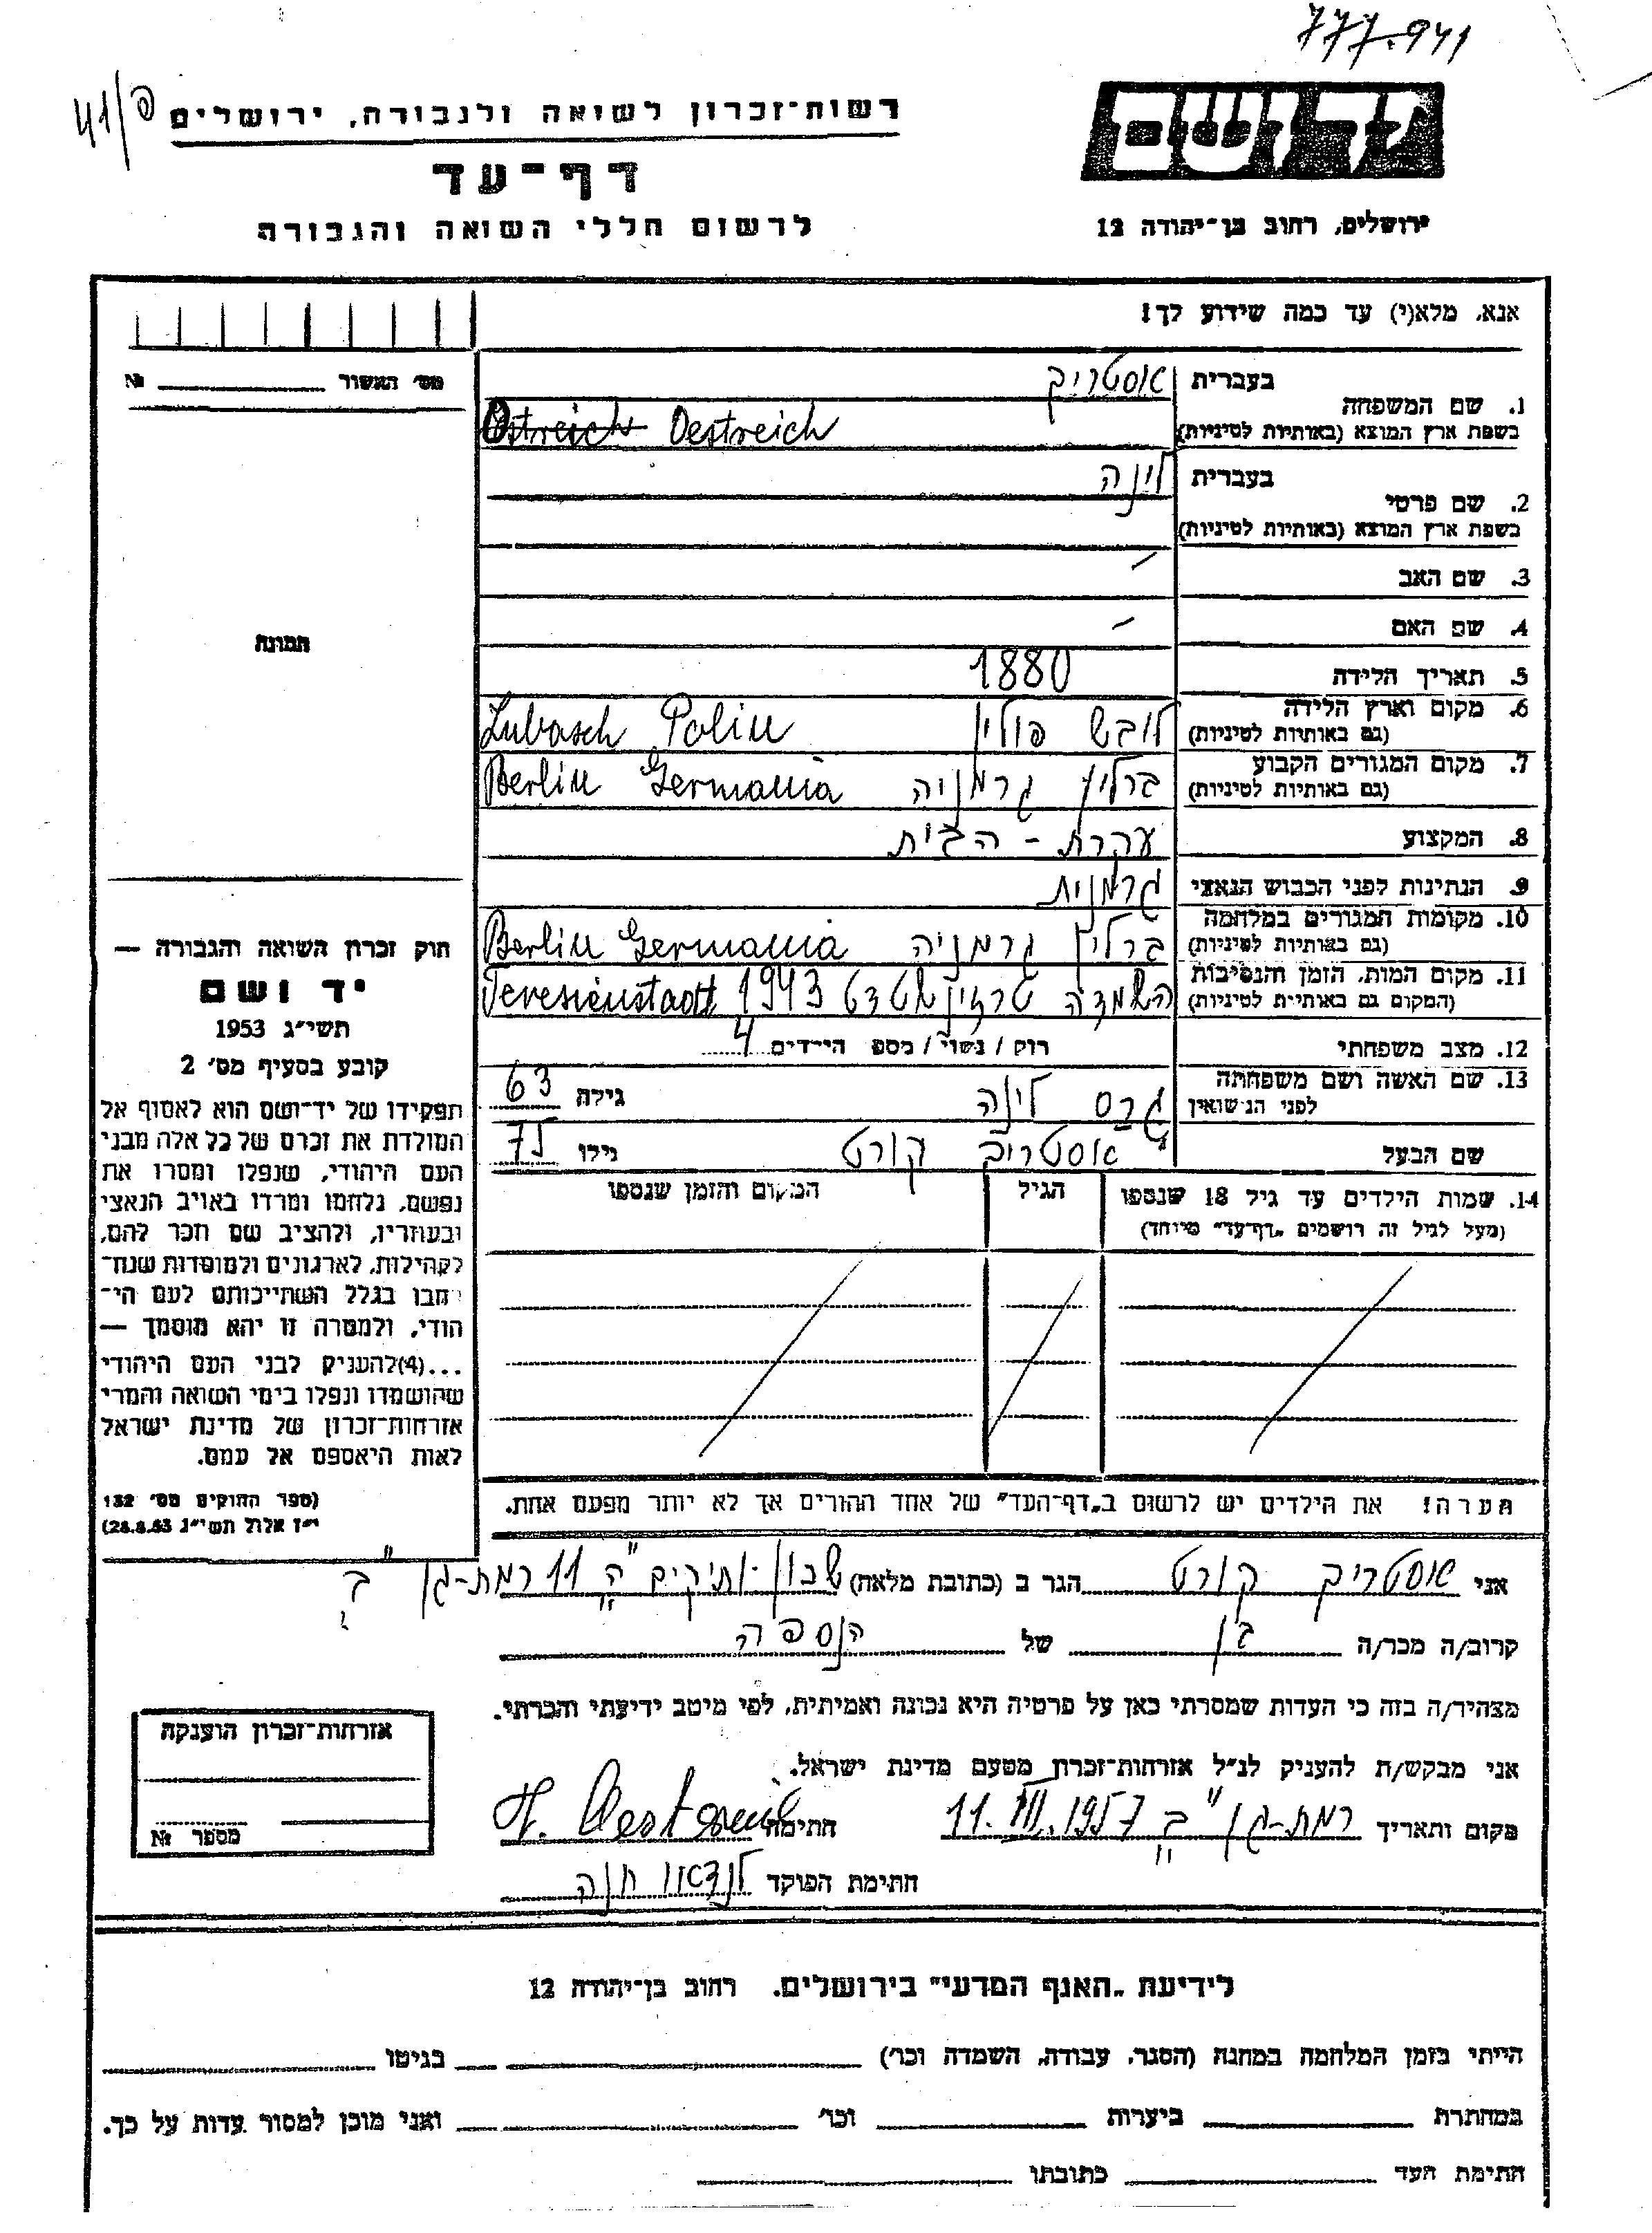 777.941
41/פ
רשות־זכרון לשואה ולגבורה, ירושלים
דף־עד
לרשום חללי השואה והגבורה
יד ושם
ירושלים, רחוב בן־יהודה 12
אנא, מלא(י) עד כמה שידוע לך!
מס׳ האשור №
תמונה
1. שם המשפחה בעברית אוסטריך
בשפת ארץ המוצא (באותיות לטיניות) Ostreich Oestreich
2. שם פרטי בעברית לינה
בשפת ארץ המוצא (באותיות לטיניות)
3. שם האב –
4. שם האם –
5. תאריך הלידה 1880
6. מקום וארץ הלידה לובש פולין Lubasch Polin
(גם באותיות לטיניות)
7. מקום המגורים הקבוע ברלין גרמניה Berlin Germania
(גם באותיות לטיניות)
8. המקצוע עקרת - הבית
9. הנתינות לפני הכבוש הנאצי גרמנית
10. מקומות המגורים במלחמה ברלין גרמניה Berlin Germania
(גם באותיות לטיניות)
11. מקום המות, הזמן והנסיבות השמדה טרזינשטדט 1943 Teresienstadt
(המקום גם באותיות לטיניות)
12. מצב משפחתי רוק / נשוי / מספ הילדים 4
13. שם האשה ושם משפחתה לפני הנישואין לינה גילה 63
שם הבעל אוסטריך קורט גילו 75
14. שמות הילדים עד גיל 18 שנספו הגיל המקום והזמן שנספו
(מעל לגיל זה רושמים „דף־עד" מיוחד)
חוק זכרון השואה והגבורה —
יד ושם
תשי״ג 1953
קובע בסעיף מס׳ 2
תפקידו של יד־ושם הוא לאסוף אל
המולדת את זכרם של כל אלה מבני
העם היהודי, שנפלו ומסרו את
נפשם, נלחמו ומרדו באויב הנאצי
ובעוזריו, ולהציב שם וזכר להם,
לקהילות, לארגונים ולמוסדות שנח־
רבו בגלל השתייכותם לעם הי־
הודי, ולמטרה זו יהא מוסמך —
...(4)להעניק לבני העם היהודי
שהושמדו ונפלו בימי השואה והמרי
אזרחות־זכרון של מדינת ישראל
לאות היאספם אל עמם.
(ספר החוקים מס׳ 132
י״ז אלול תשי״ג 28.8.53)
הערה! את הילדים יש לרשום ב„דף־העד" של אחד ההורים אך לא יותר מפעם אחת.
אני אוסטריך קורט הגר ב (כתובת מלאה) שכון-ותיקים "ה" 11 רמת-גן "ב"
קרוב/ה מכר/ה בן של הנספה
מצהיר/ה בזה כי העדות שמסרתי כאן על פרטיה היא נכונה ואמיתית, לפי מיטב ידיעתי והכרתי.
אני מבקש/ת להעניק לנ״ל אזרחות־זכרון מטעם מדינת ישראל.
מקום ותאריך רמת-גן "ב" 11.III.1957 חתימה
חתימת הפוקד לנדאו חנה
אזרחות־זכרון הוענקה
מספר №
לידיעת „האגף המדעי" בירושלים. רחוב בן־יהודה 12
הייתי בזמן המלחמה במחנה (הסגר, עבודה, השמדה וכו׳) בגיטו
במחתרת ביערות וכו׳ ואני מוכן למסור עדות על כך.
חתימת העד כתובתו